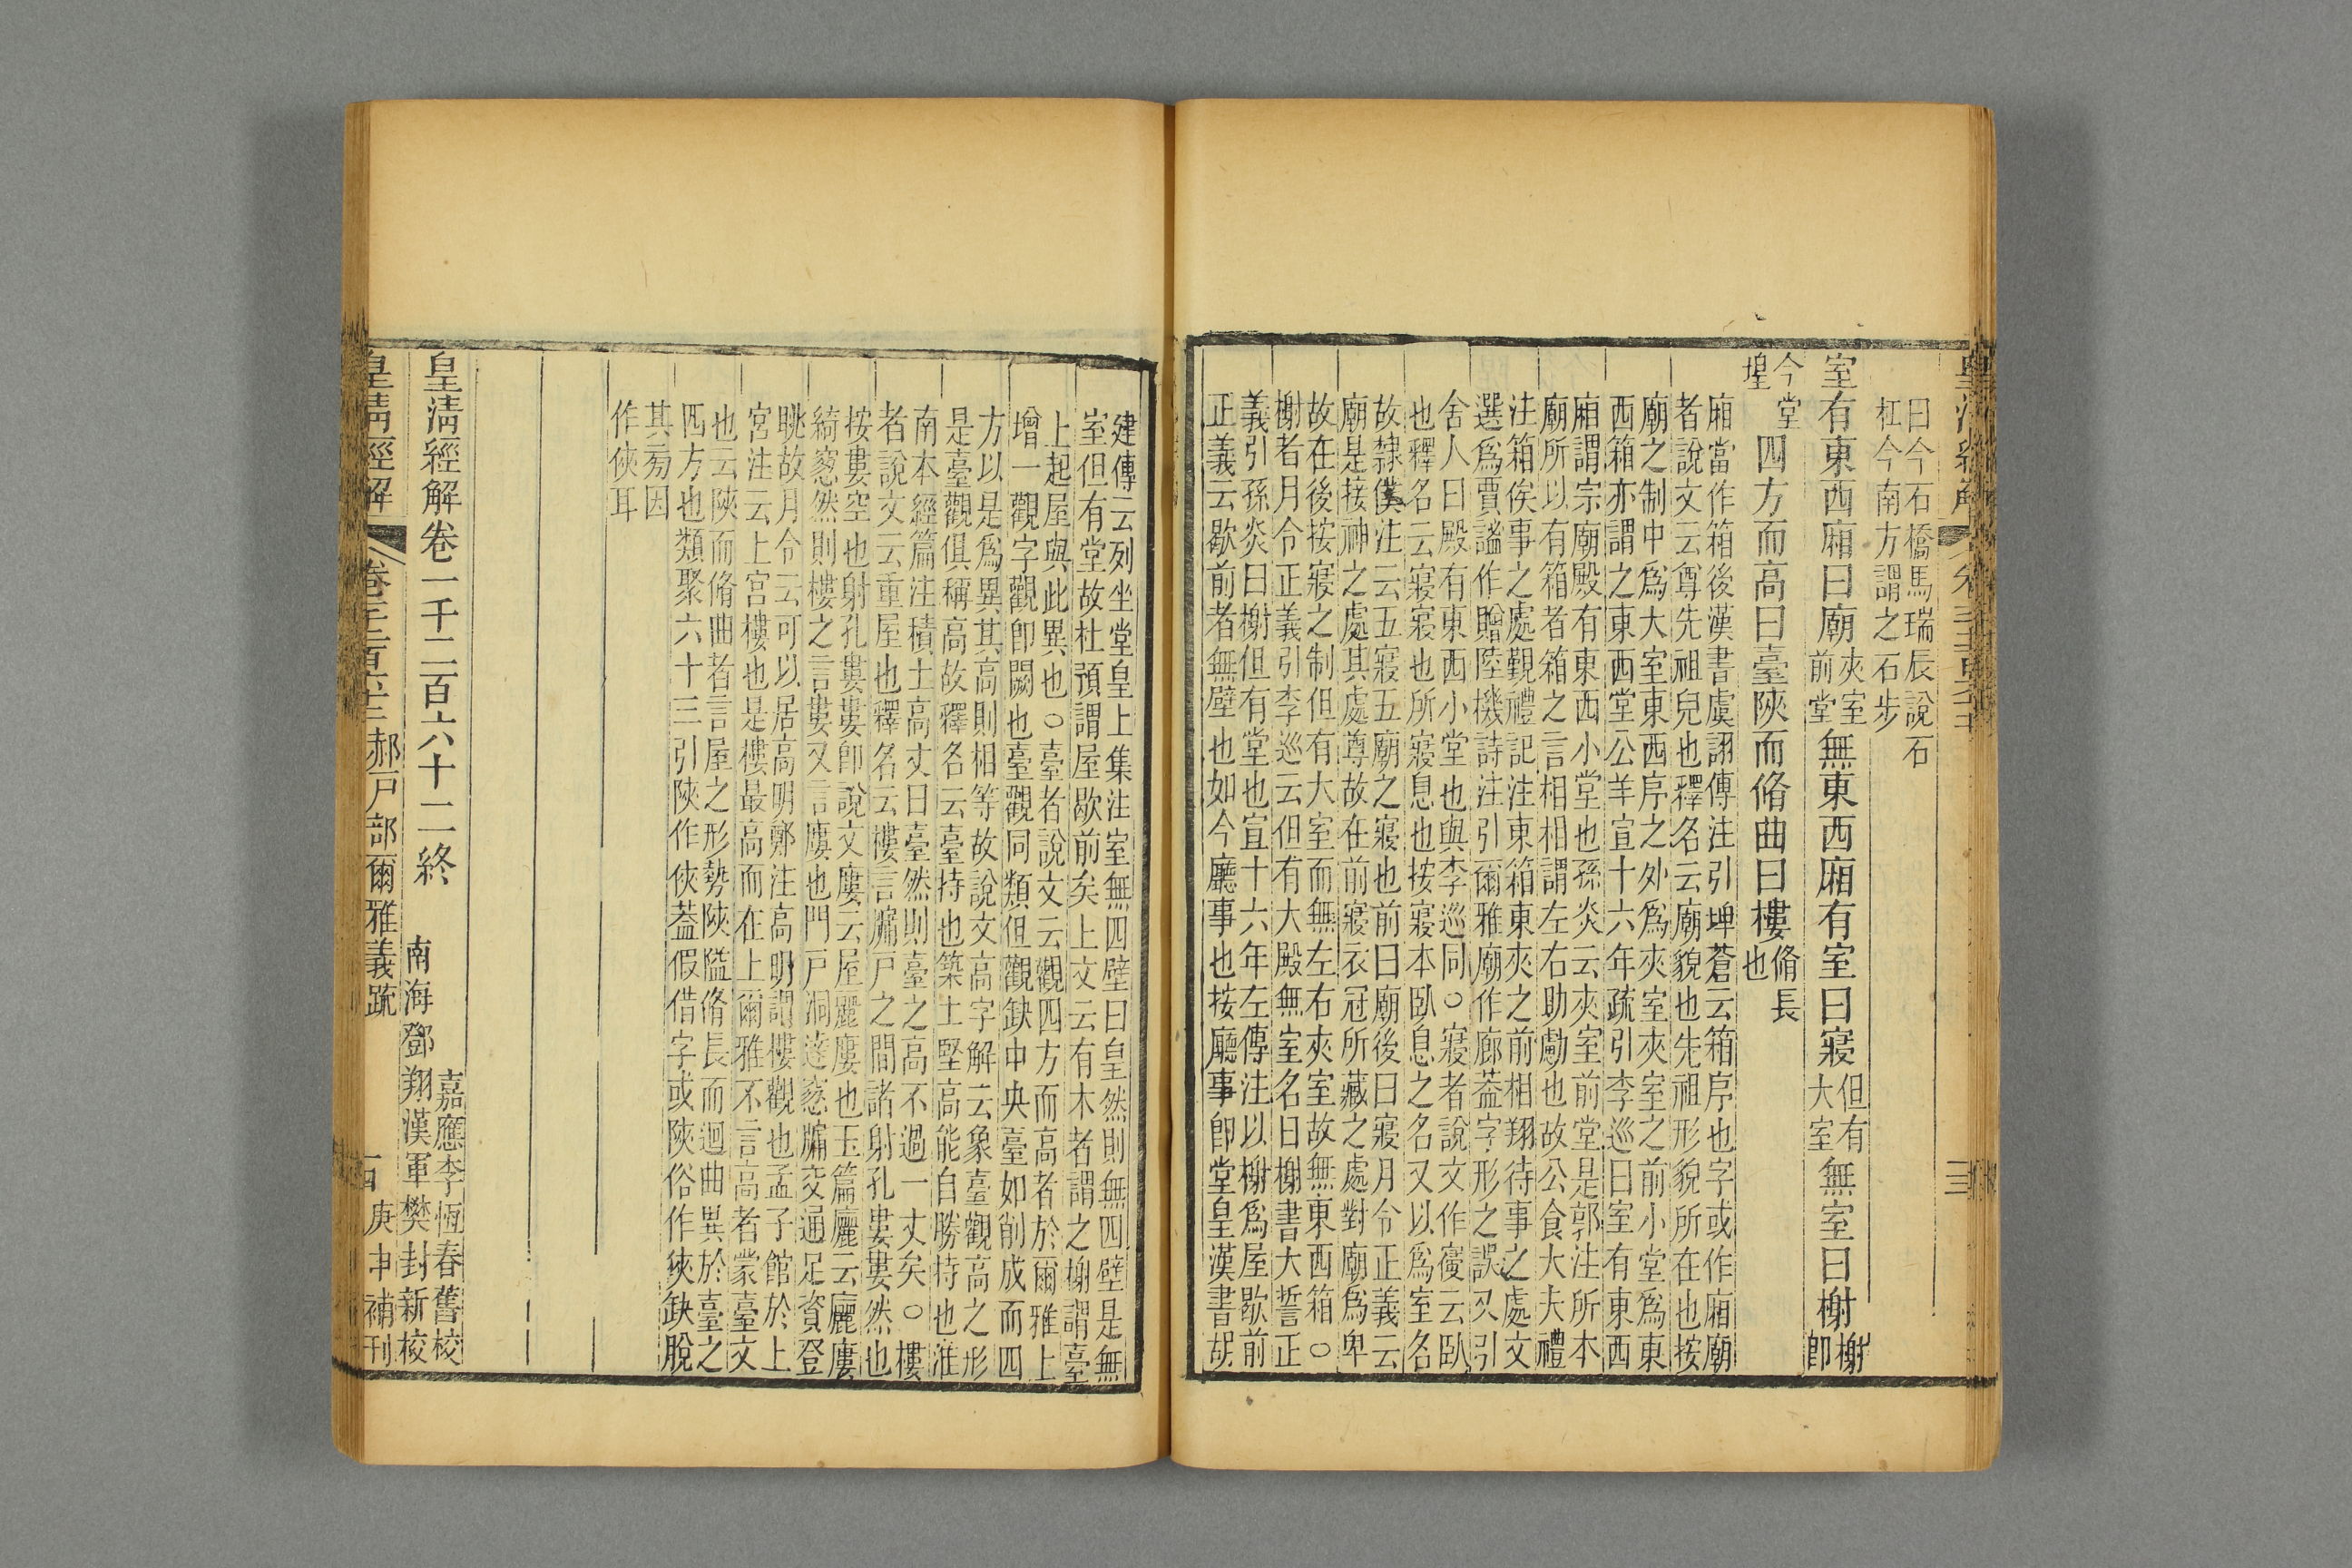 曰今石橋馬瑞辰說石
杠今南方謂之石步
室有東西廂曰廟夾室前堂無東西廂有室曰寢但有大室無室曰榭榭卽
今堂堭四方而高曰臺陝而脩曲曰樓脩長也
廂當作箱後漢書虞詡傳注引埤蒼云箱序也字或作廂廟
者說文云尊先祖皃也釋名云廟貌也先祖形貌所在也按
廟之制中爲大室東西序之外爲夾室夾室之前小堂爲東
西箱亦謂之東西堂公羊宣十六年疏引李巡曰室有東西
廂謂宗廟殿有東西小堂也孫炎云夾室前堂是郭注所本
廟所以有箱者箱之言相相謂左右助勴也故公食大夫禮
注箱俟事之處覲禮記注東箱東夾之前相翔待事之處文
選爲賈謐作贈陸機詩注引爾雅廟作廊葢字形之誤又引
舍人曰殿有東西小堂也與李巡同○寢者說文作㝲云臥
也釋名云寢寢也所寢息也按寢本臥息之名又以爲室名
故隸僕注云五寢五廟之寢也前曰廟後曰寢月令正義云
廟是接神之處其處尊故在前寢衣冠所藏之處對廟爲卑
故在後按寢之制但有大室而無左右夾室故無東西箱○
榭者月令正義引李巡云但有大殿無室名曰榭書大誓正
義引孫炎曰榭但有堂也宣十六年左傳注以榭爲屋歇前
正義云歇前者無壁也如今廳事也按廳事卽堂皇漢書胡
建傳云列坐堂皇上集注室無四壁曰皇然則無四壁是無
室但有堂故杜預謂屋歇前矣上文云有木者謂之榭謂臺
上起屋與此異也○臺者說文云觀四方而高者於爾雅上
增一觀字觀卽闕也臺觀同類但觀缺中央臺如削成而四
方以是爲異其高則相等故說文高字解云象臺觀高之形
是臺觀俱稱高故釋名云臺持也築土堅高能自勝持也淮
南本經篇注積土高丈曰臺然則臺之高不過一丈矣○樓
者說文云重屋也釋名云樓言牖戸之間諸射孔婁婁然也
按婁空也射孔婁婁卽說文廔云屋麗廔也玉篇廲云廲廔
綺窻然則樓之言婁又言廔也門戸洞達窻牖交通足資登
眺故月令云可以居高明鄭注高明謂樓觀也孟子館於上
宮注云上宮樓也是樓最高而在上爾雅不言高者蒙臺文
也云陝而脩曲者言屋之形勢陝隘脩長而迴曲異於臺之
四方也類聚六十三引陝作俠葢假借字或陝俗作狹缺脫
其㫄因
作俠耳
皇清經解卷一千二百六十二終
嘉應李恆春舊校
南海鄧翔漢軍樊封新校
皇清經解
郝戸部爾雅義疏
庚申補刊